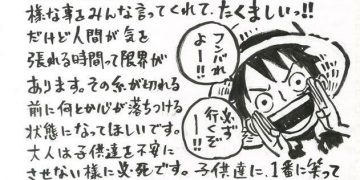 様な事をみんな言ってくれて、たくましいっ!!
だけど人間が気を
張れる時間って限界が
あります。その糸が切れる
前に何とか心が落ちつける
状態になってほしいです。
大人は子供達を不安に
させない様に必死です。子供達に、1番に笑って
フンバれ
よーー!!
必ず
行くぞ
ーー!!